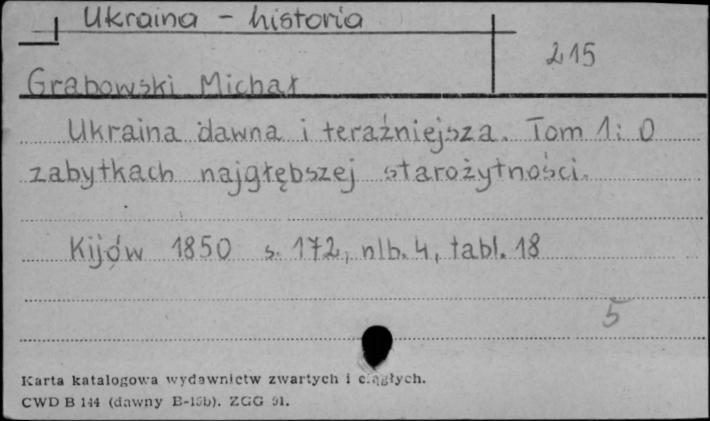 Ukraina - historia
215
Grabowski Michał
Ukraina dawna i teraźniejsza. Tom 1: O
zabytkach najgłębszej starożytności.
Kijów 1850 s. 172, nlb. 4, tabl. 18
5
Karta katalogowa wydawnictw zwartych i ciągłych.
CWD B 144 (dawny B-15b). ZGG 91.